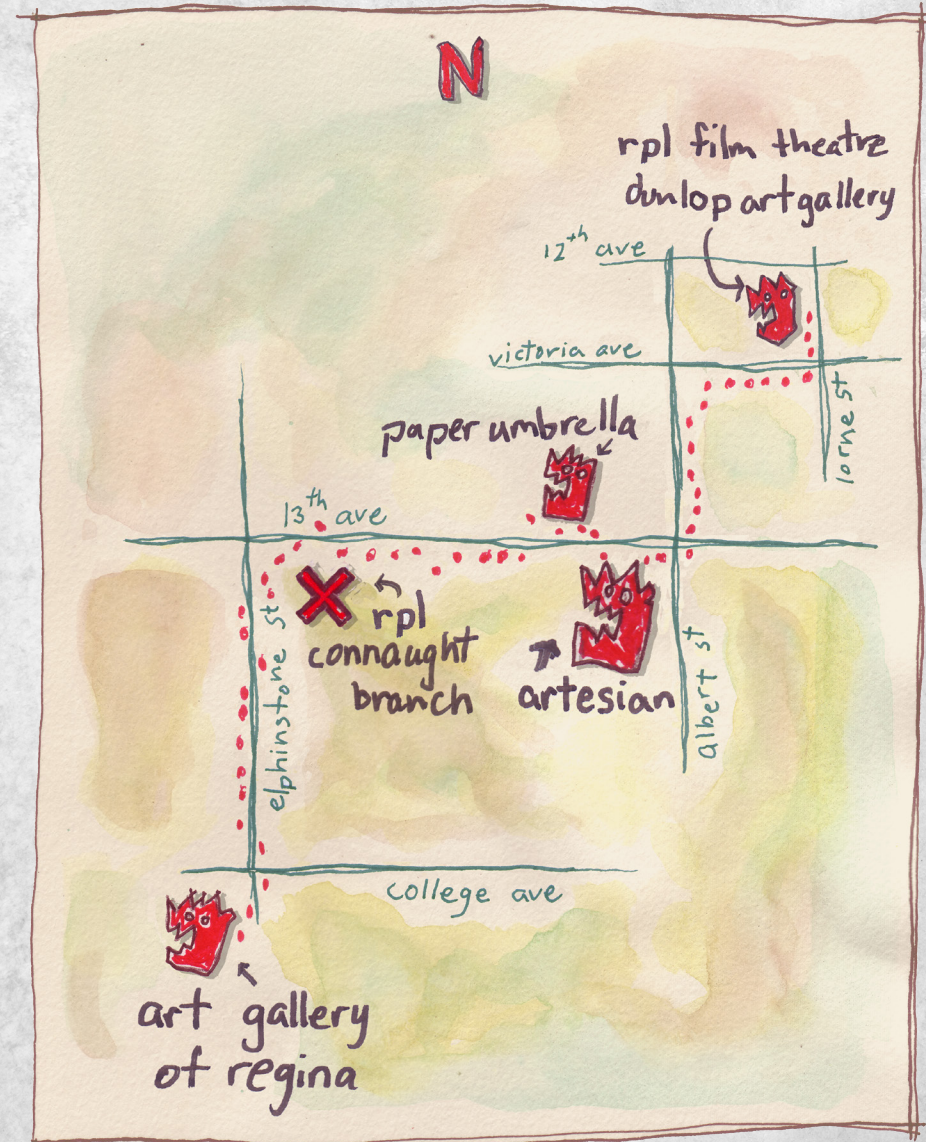 N
rpl film theatre
dunlop art gallery
12th ave
victoria ave
lorne st
paper umbrella
13th ave
rpl
connaught
branch
elphinstone st
artesian
albert st
college ave
art gallery
of regina